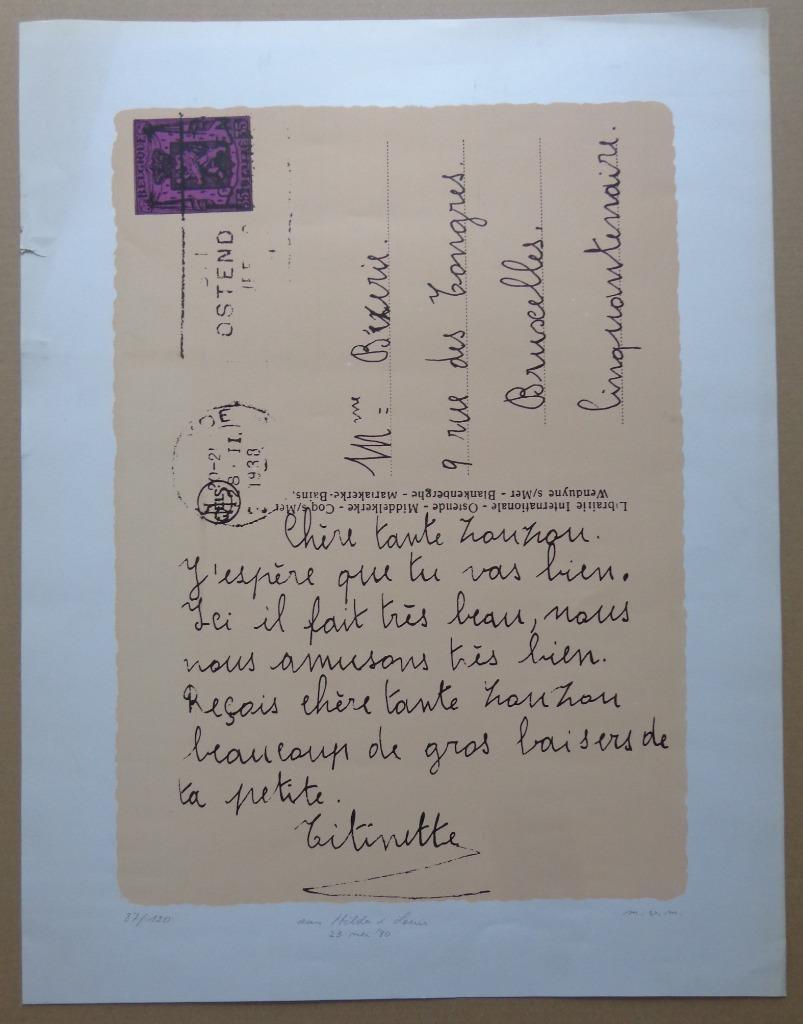 BELGIQUE
OSTEND
20-21
28. II
1938
Mme Bézerie.
9 rue des Congres.
Bruxelles.
Cinquantenaire.
Librairie Internationale - Ostende - Middelkerke - Coq s/Mer
Wenduyne s/Mer - Blankenberghe - Mariakerke-Bains.
Chère tante Zouzou.
J'espère que tu vas bien.
Ici il fait très beau, nous
nous amusons très bien.
Reçois chère tante Zouzou
beaucoup de gros baisers de
ta petite.
Titinette
87/120
aan Hilda & Louis
23 mei '80
m.v.m.